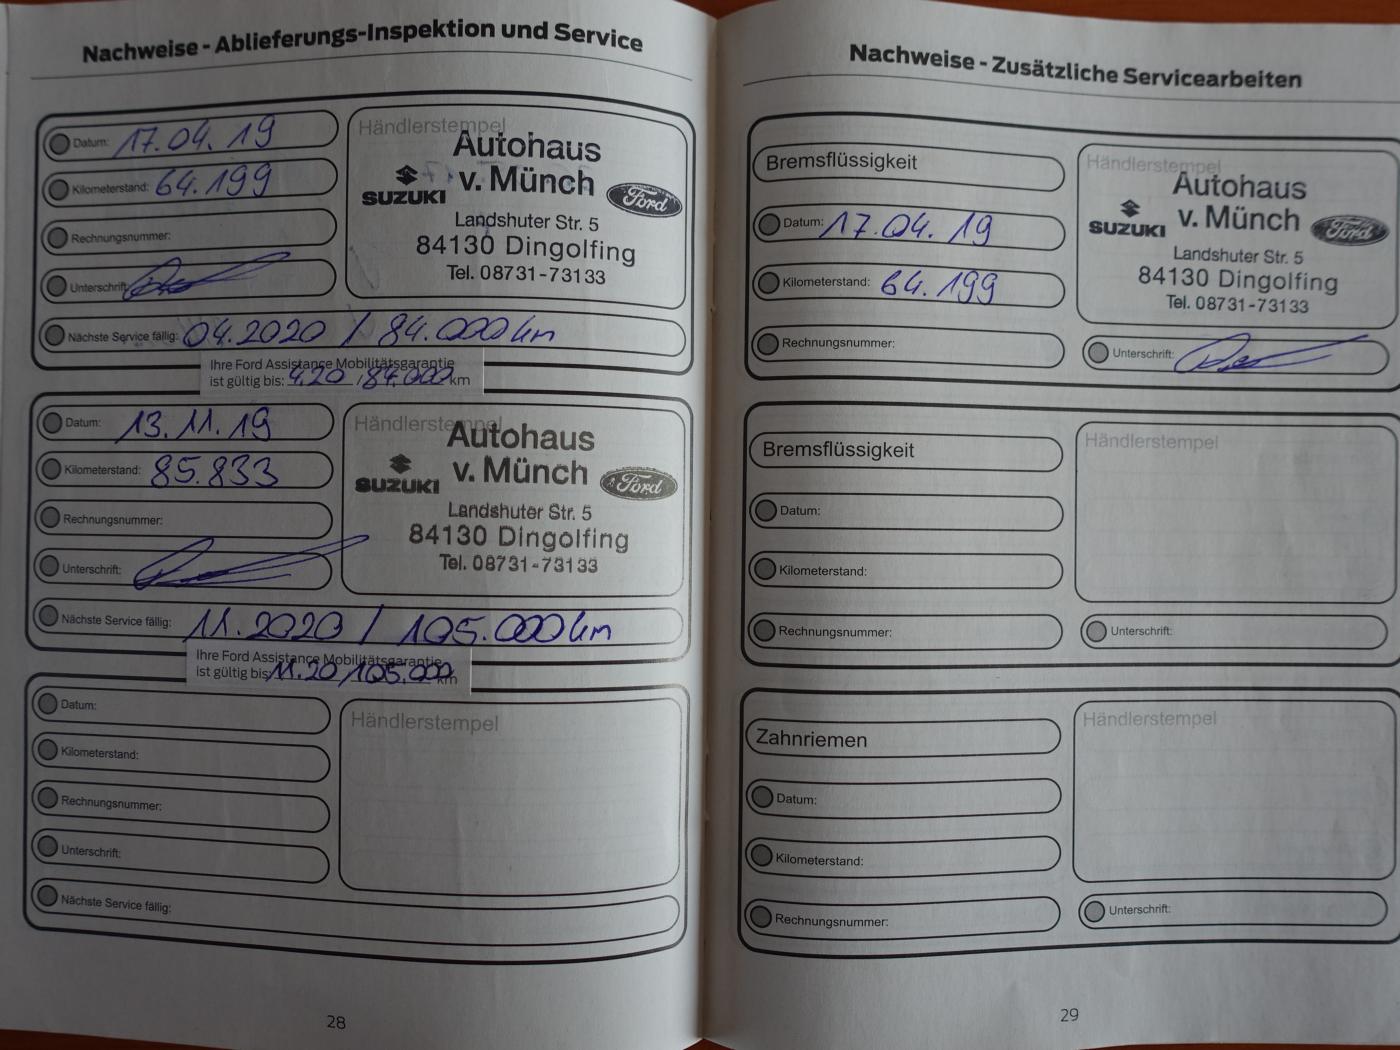 Nachweise - Ablieferungs-Inspektion und Service
Datum: 17.04.19
Kilometerstand: 64.199
Rechnungsnummer:
Unterschrift:
Händlerstempel
Autohaus
v. Münch
SUZUKI
Ford
Landshuter Str. 5
84130 Dingolfing
Tel. 08731-73133
Nächste Service fällig: 04.2020 / 84.000 km
Ihre Ford Assistance Mobilitätsgarantie
ist gültig bis: 4.20 / 84.000 km
Datum: 13.11.19
Kilometerstand: 85.833
Rechnungsnummer:
Unterschrift:
Händlerstempel
Autohaus
v. Münch
SUZUKI
Ford
Landshuter Str. 5
84130 Dingolfing
Tel. 08731-73133
Nächste Service fällig: 11.2020 / 105.000 km
Ihre Ford Assistance Mobilitätsgarantie
ist gültig bis 11.20 / 105.000 km
Datum:
Kilometerstand:
Rechnungsnummer:
Unterschrift:
Händlerstempel
Nächste Service fällig:
28
Nachweise - Zusätzliche Servicearbeiten
Bremsflüssigkeit
Datum: 17.04.19
Kilometerstand: 64.199
Rechnungsnummer:
Händlerstempel
Autohaus
v. Münch
SUZUKI
Ford
Landshuter Str. 5
84130 Dingolfing
Tel. 08731-73133
Unterschrift:
Bremsflüssigkeit
Datum:
Kilometerstand:
Rechnungsnummer:
Händlerstempel
Unterschrift:
Zahnriemen
Datum:
Kilometerstand:
Rechnungsnummer:
Händlerstempel
Unterschrift:
29